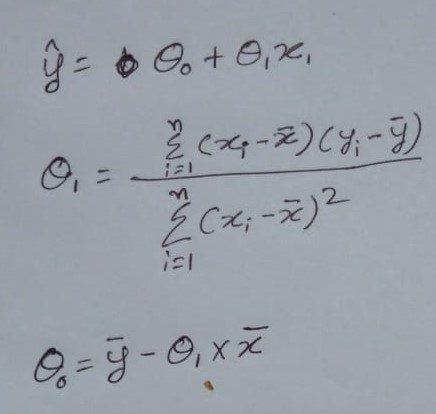 ŷ = θ₀ + θ₁x₁
θ₁ = \frac{\sum_{i=1}^{n} (x_i - x̄)(y_i - ȳ)}{\sum_{i=1}^{n} (x_i - x̄)^2}
θ₀ = ȳ - θ₁ × x̄